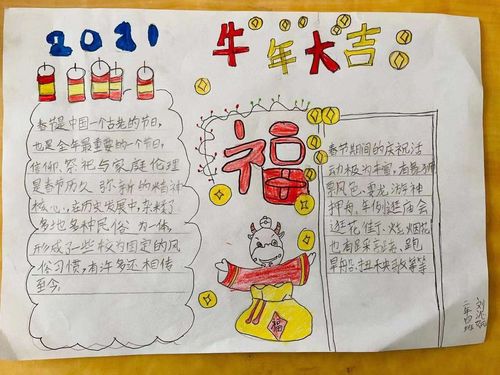 2021
牛年大吉
春节是中国一个古老的节日,
也是全年最重要的一个节日,
信仰、祭祀与家庭伦理
是春节历久弥新的精神
核心,在历史发展中,杂糅了
多地多种民俗为一体,
形成了一些较为固定的风
俗习惯,有许多还相传
至今。
福
福
春节期间的庆祝活
动极为丰富,有舞狮、
飘色、耍龙、游神、
押舟、年例、逛庙会、
逛花街、烧烟花
也有踩高跷、跑
旱船、扭秧歌等等
二年四班
刘